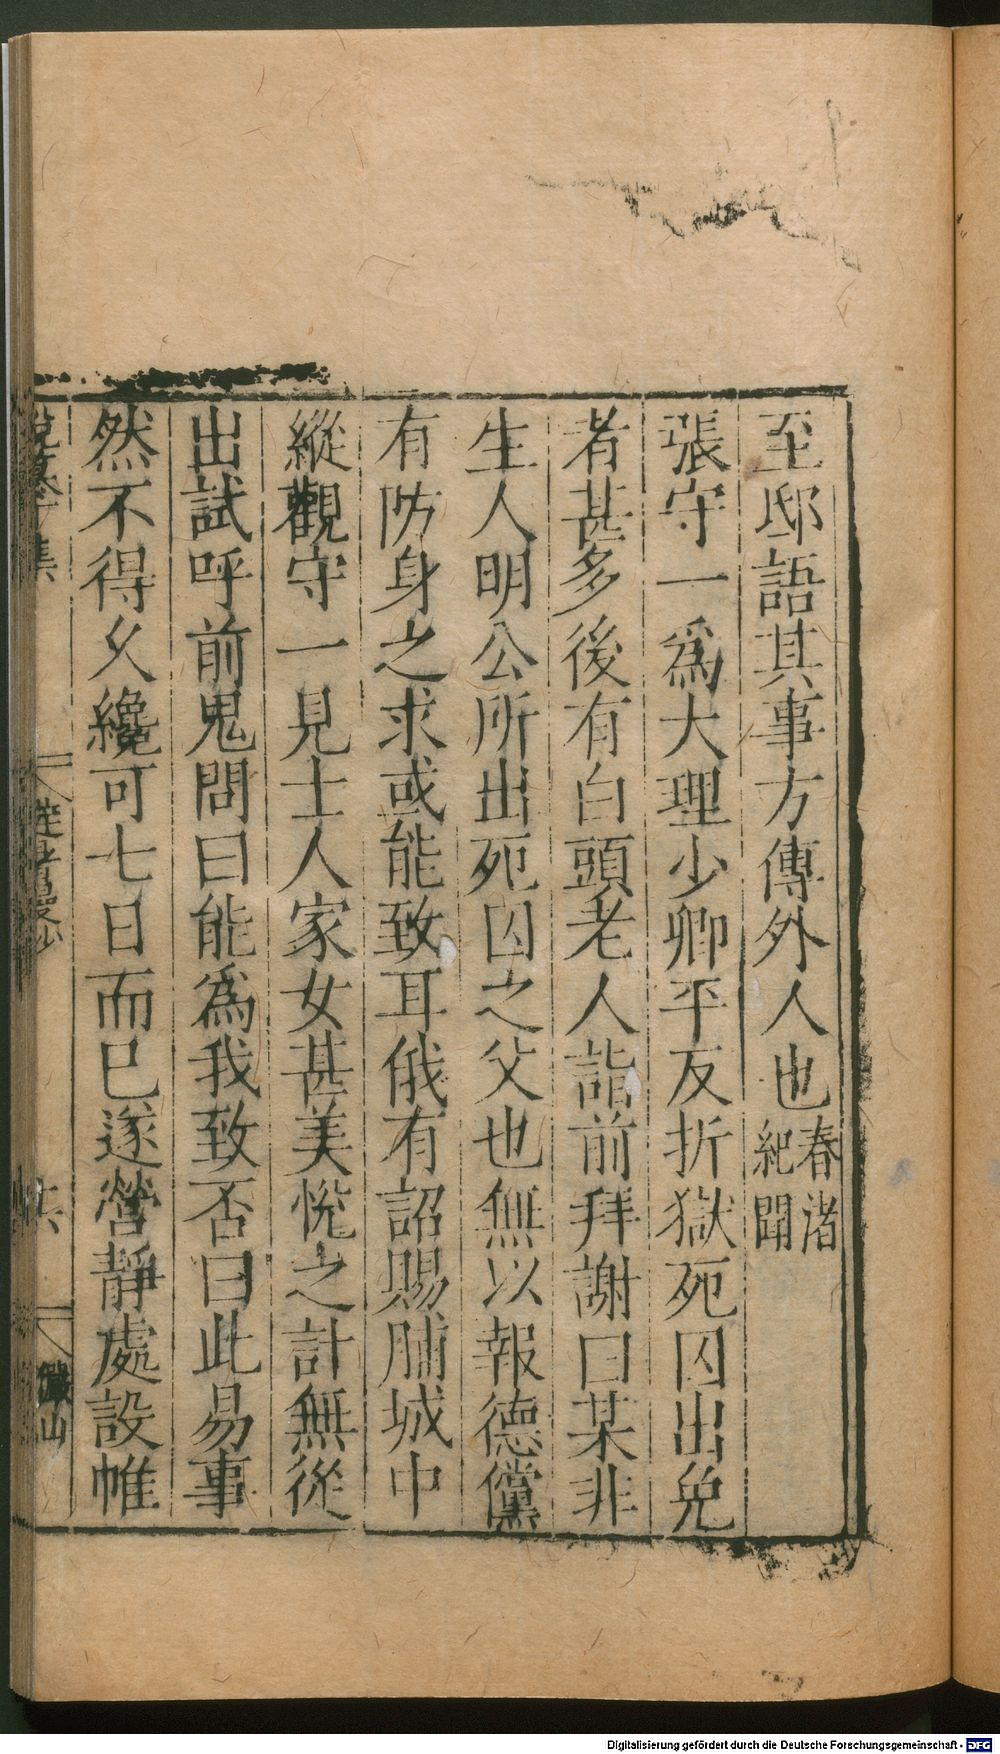 至邸語其事方傳外人也春渚紀聞
張守一爲大理少卿平反折獄死囚出免
者甚多後有白頭老人詣前拜謝曰某非
生人明公所出死囚之父也無以報德儻
有防身之求或能致耳俄有詔賜脯城中
縱觀守一見士人家女甚美悅之計無從
出試呼前鬼問曰能爲我致否曰此易事
然不得久纔可七日而已遂營靜處設帷
Digitalisierung gefördert durch die Deutsche Forschungsgemeinschaft - DFG